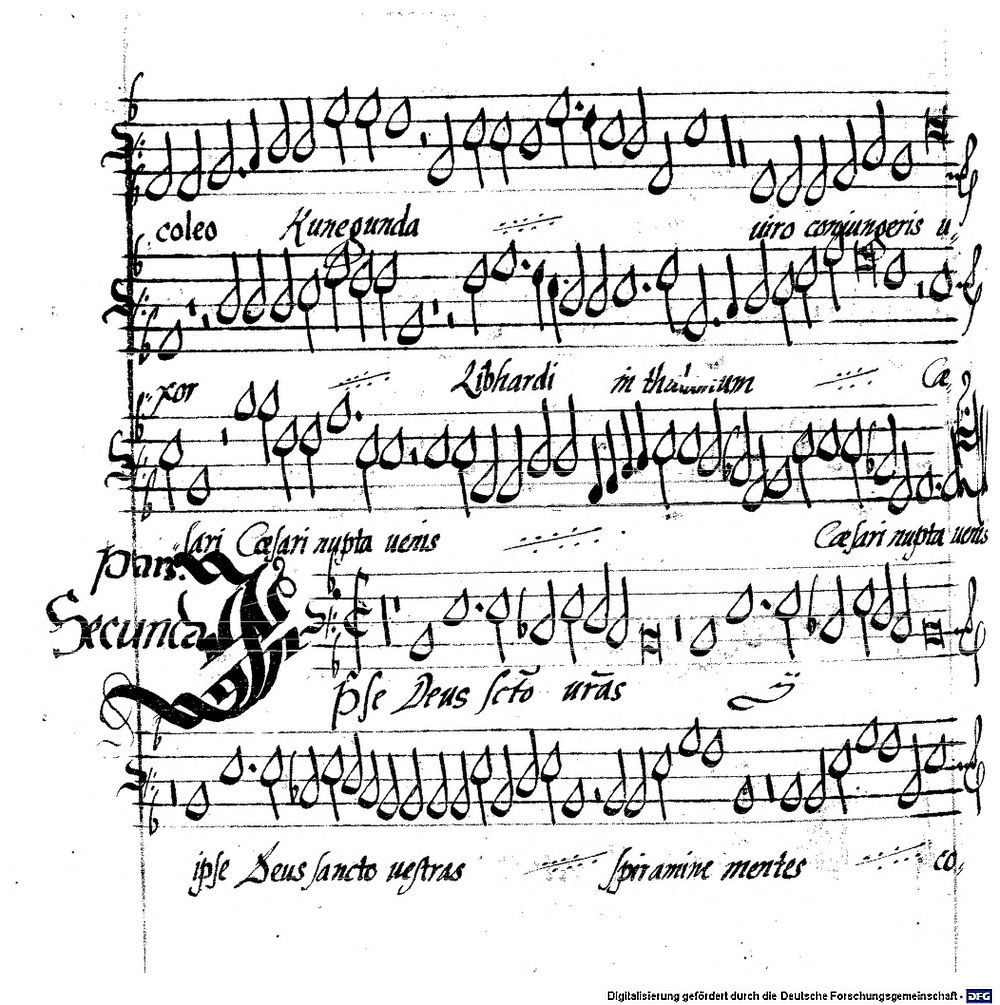 coleo Kunegunda uiro conjungeris u,,
xor Libhardi in thalamum Cæ,,
sari Cæsari nupta uenis Cæsari nupta uenis
Secunda pars.
Ipse Deus scto uras ij
ipse Deus sancto uestras spiramine mentes co,,
Digitalisierung gefördert durch die Deutsche Forschungsgemeinschaft - DFG